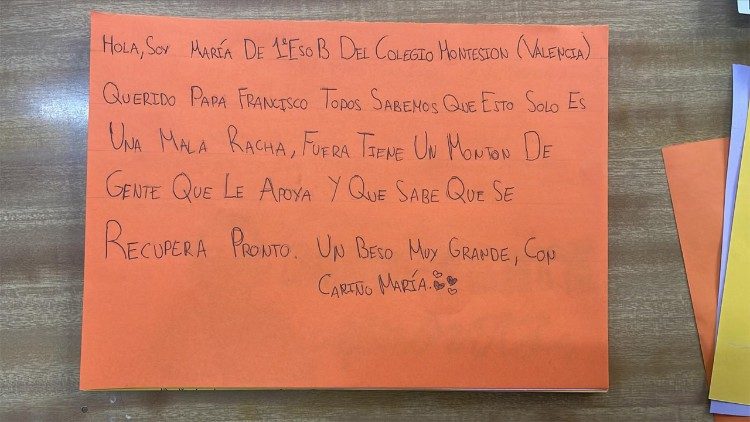 Hola, Soy María De 1ºEso B Del Colegio Montesion (Valencia)
Querido Papa Francisco Todos Sabemos Que Esto Solo Es
Una Mala Racha, Fuera Tiene Un Monton De
Gente Que Le Apoya Y Que Sabe Que Se
Recupera Pronto. Un Beso Muy Grande, Con
Cariño María.